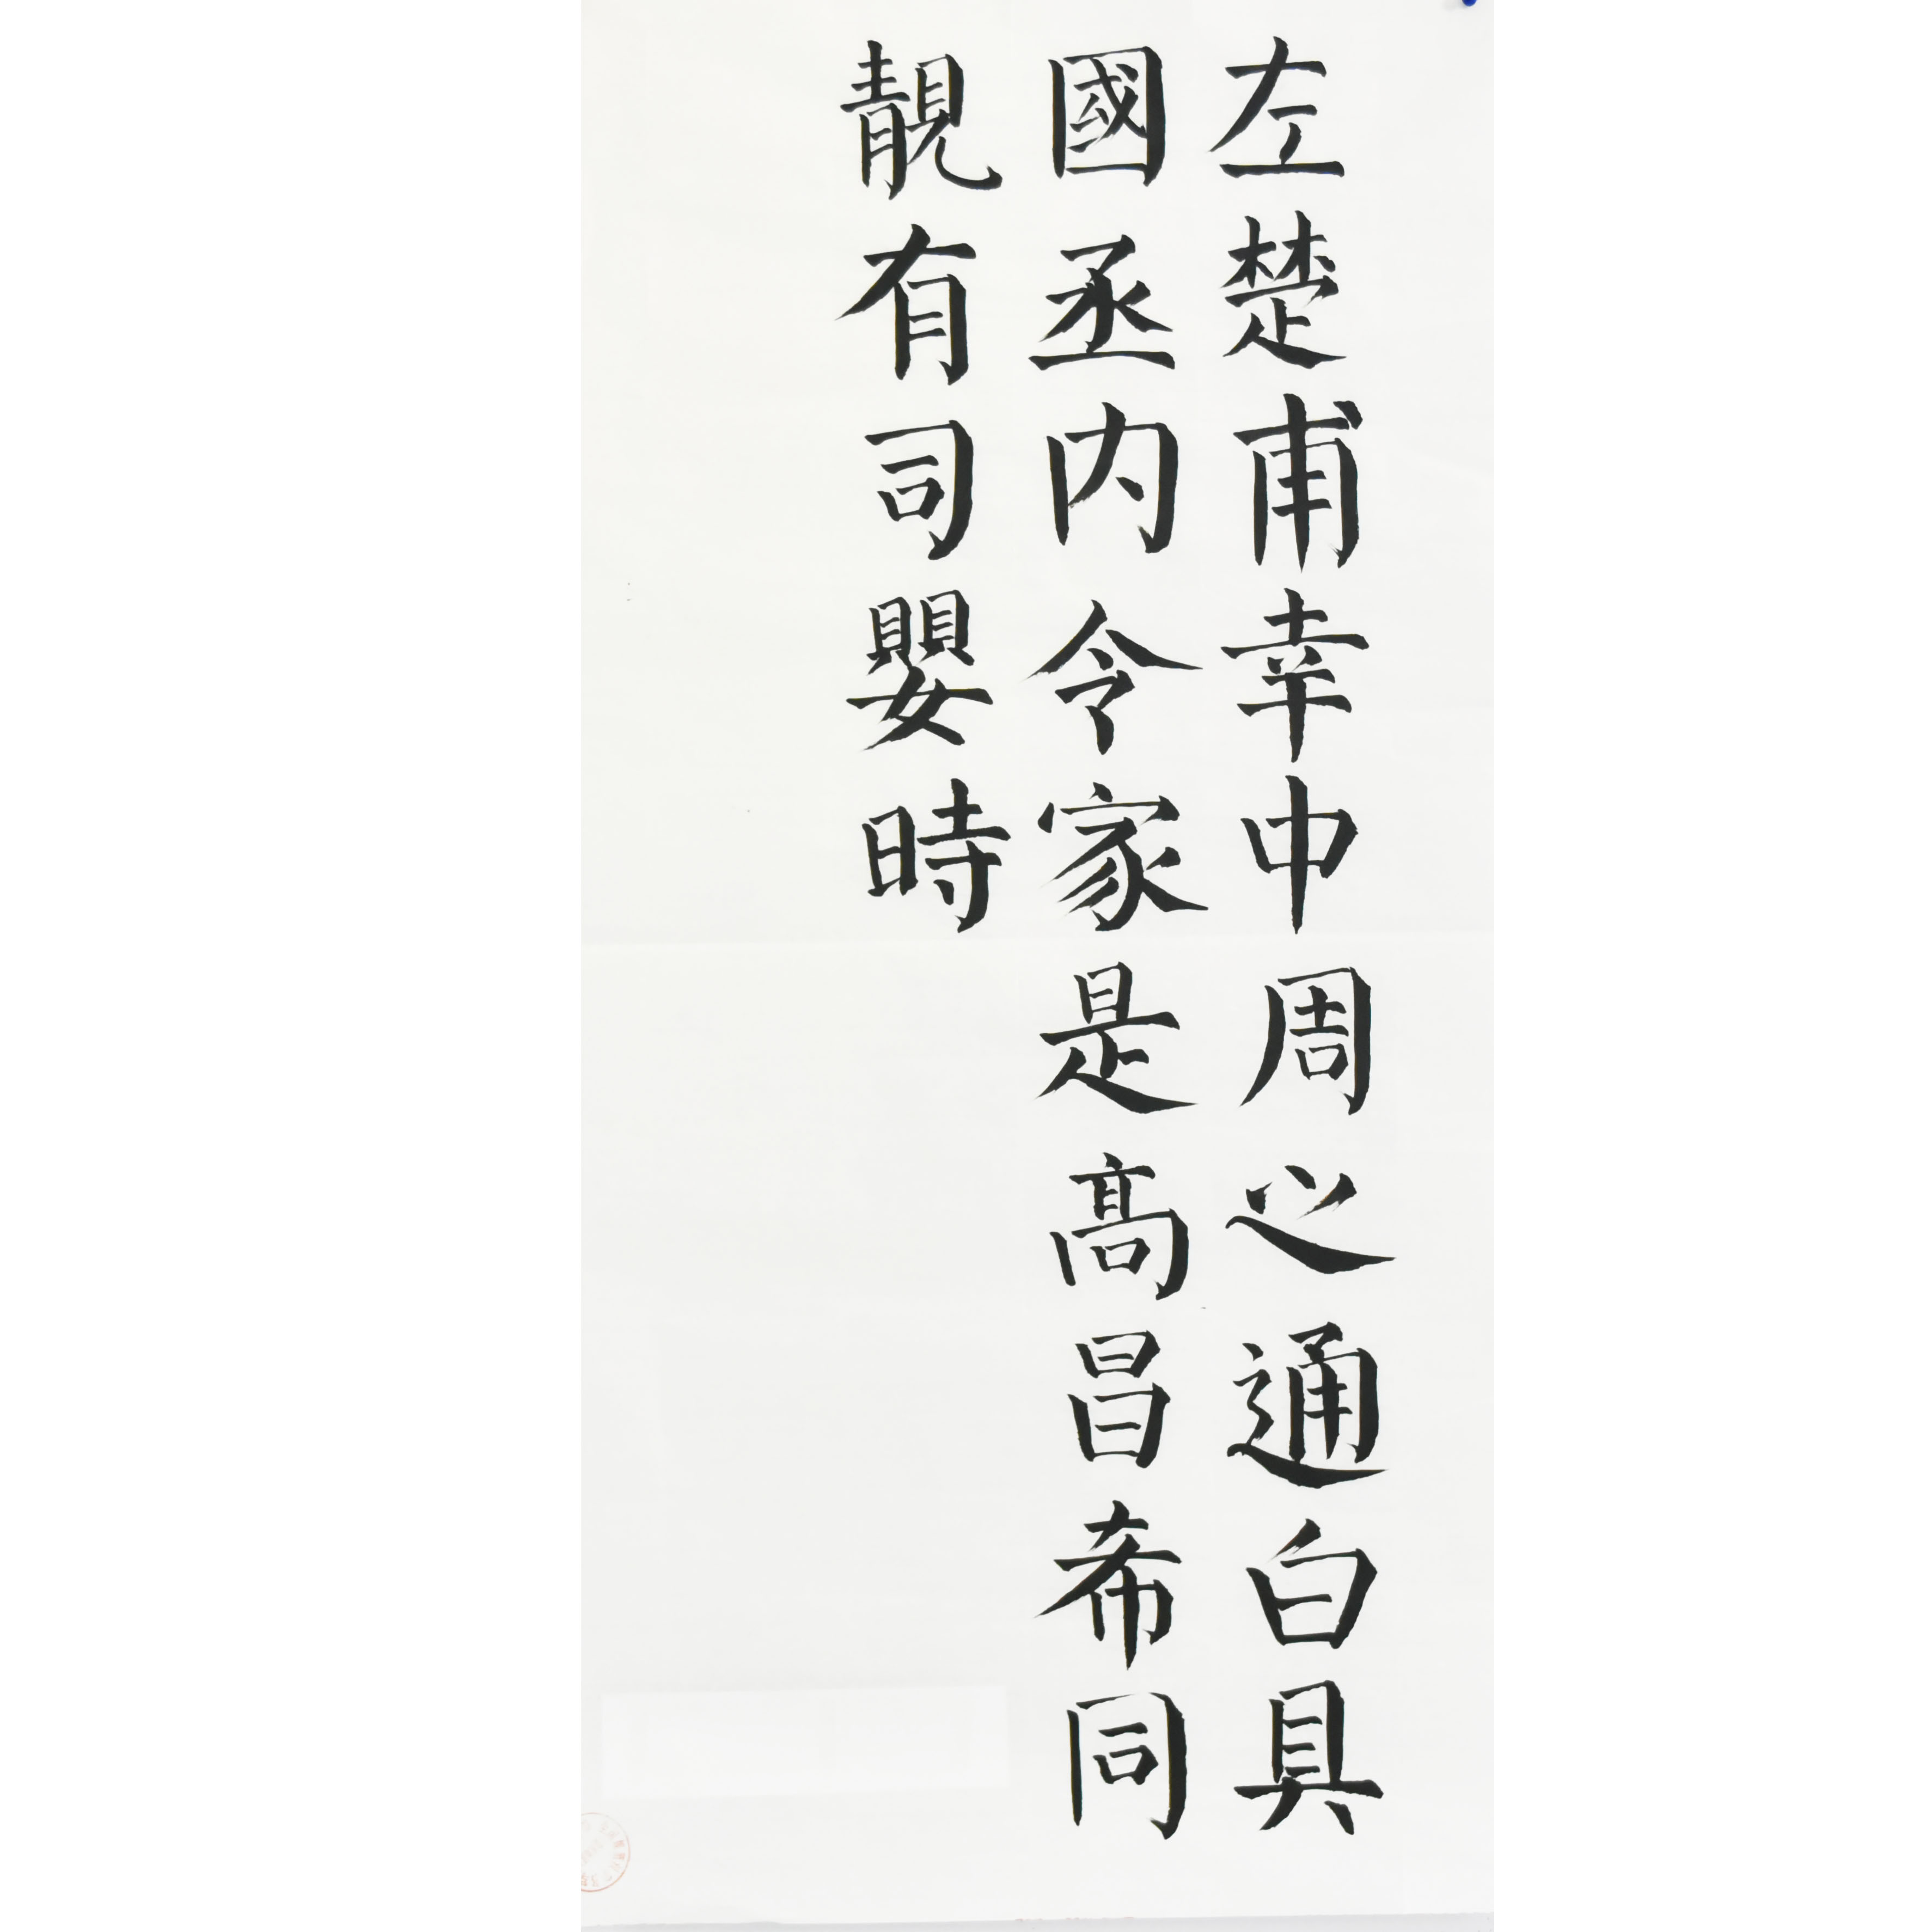 左楚甫幸申周之通白具
國丞内令家是高昌希同
靚有司嬰時